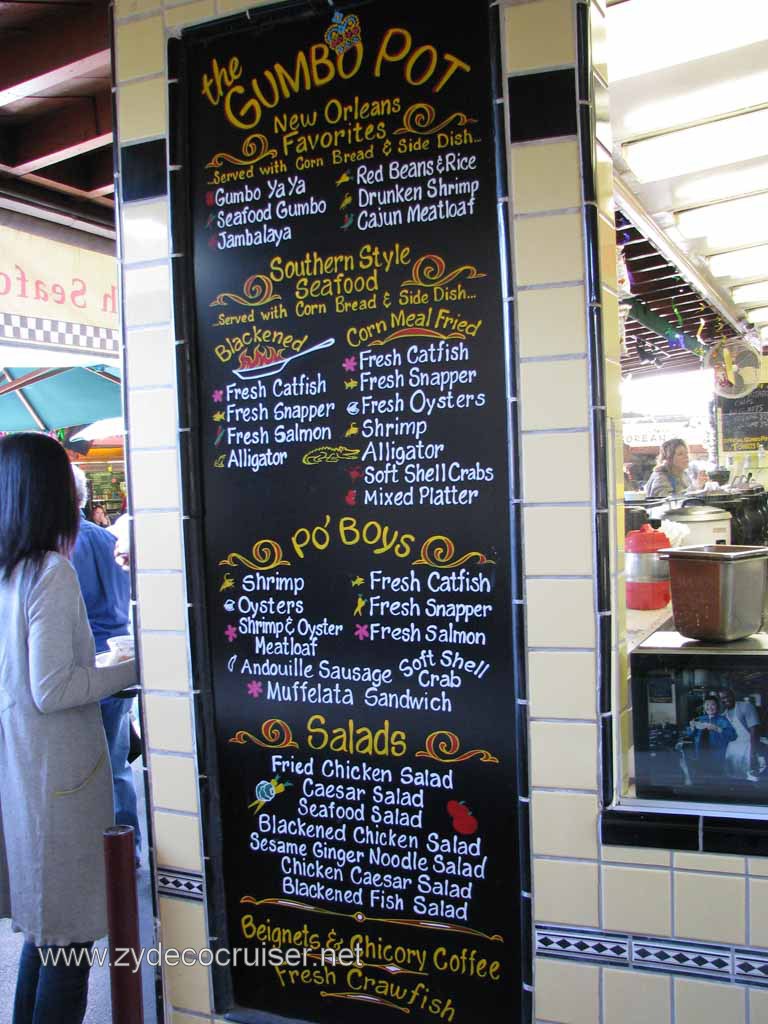 the GUMBO POT
New Orleans
Favorites
...Served with Corn Bread & Side Dish...
Gumbo Ya Ya
Seafood Gumbo
Jambalaya
Red Beans & Rice
Drunken Shrimp
Cajun Meatloaf
Southern Style
Seafood
...Served with Corn Bread & Side Dish...
Blackened
Fresh Catfish
Fresh Snapper
Fresh Salmon
Alligator
Corn Meal Fried
Fresh Catfish
Fresh Snapper
Fresh Oysters
Shrimp
Alligator
Soft Shell Crabs
Mixed Platter
Po' Boys
Shrimp
Oysters
Shrimp & Oyster
Meatloaf
Fresh Catfish
Fresh Snapper
Fresh Salmon
Andouille Sausage
Soft Shell
Crab
Muffelata Sandwich
Salads
Fried Chicken Salad
Caesar Salad
Seafood Salad
Blackened Chicken Salad
Sesame Ginger Noodle Salad
Chicken Caesar Salad
Blackened Fish Salad
Beignets & Chicory Coffee
Fresh Crawfish
www.zydecocruiser.net